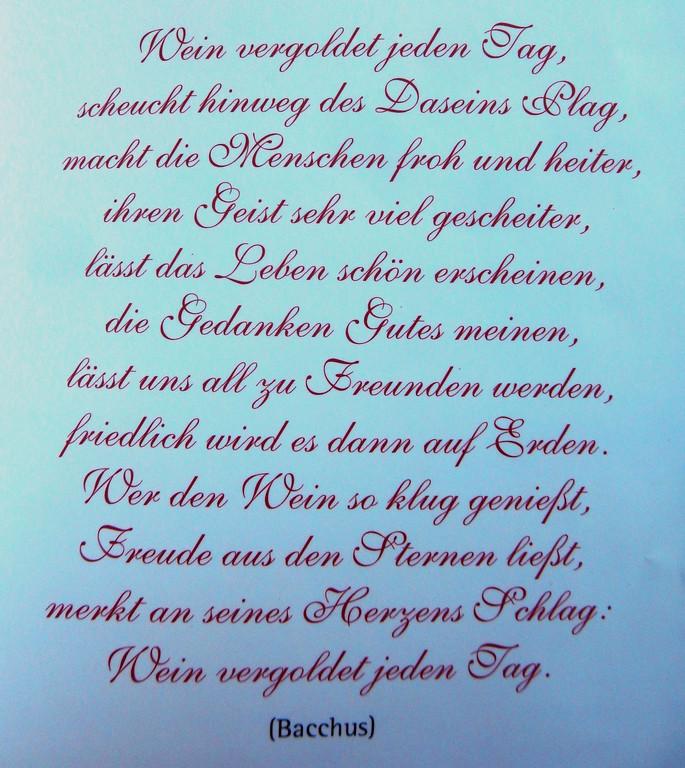 Wein vergoldet jeden Tag,
scheucht hinweg des Daseins Plag,
macht die Menschen froh und heiter,
ihren Geist sehr viel gescheiter,
lässt das Leben schön erscheinen,
die Gedanken Gutes meinen,
lässt uns all zu Freunden werden,
friedlich wird es dann auf Erden.
Wer den Wein so klug genießt,
Freude aus den Sternen ließt,
merkt an seines Herzens Schlag:
Wein vergoldet jeden Tag.
(Bacchus)